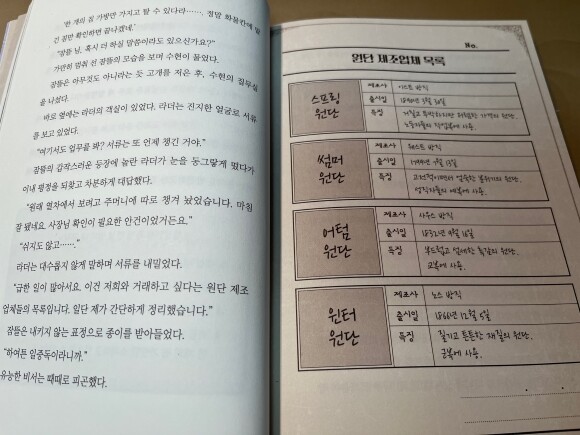 '한 개의 짐 가방만 가지고 탈 수 있다라……, 정말 화물칸에 맡
긴 짐만 확인하면 끝나겠네.'
"잠뜰 님, 혹시 더 하실 말씀이라도 있으신가요?"
가만히 멈춰 선 잠뜰의 모습을 보며 수현이 물었다.
잠뜰은 아무것도 아니라는 듯 고개를 저은 후, 수현의 집무실
을 나섰다.
바로 옆에는 라더의 객실이 있었다. 라더는 진지한 얼굴로 서류
를 보고 있었다.
"여기서도 업무를 봐? 서류는 또 언제 챙긴 거야."
잠뜰의 갑작스러운 등장에 놀란 라더가 눈을 동그랗게 떴다가
이내 평정을 되찾고 차분하게 대답했다.
"원래 열차에서 보려고 주머니에 따로 챙겨 놨었습니다. 마침
잘 됐네요. 사장님 확인이 필요한 안건이었거든요."
"쉬지도 않고……."
라더는 대수롭지 않게 말하며 서류를 내밀었다.
"급한 일이 많아서요. 이건 저희와 거래하고 싶다는 원단 제조
업체들의 목록입니다. 일단 제가 간단하게 정리했습니다."
잠뜰은 내키지 않는 표정으로 종이를 받아들었다.
"하여튼 일중독이라니까."
유능한 비서는 때때로 피곤했다.
No.
원단 제조업체 목록
스프링 원단
제조사 이스트 방직
출시일
특징 거칠고 투박하지만 저렴한 가격의 원단.
노동자들의 작업복에 사용.
썸머 원단
제조사 웨스트 방직
출시일
특징 고전적이면서 엄숙한 분위기의 원단.
성직자들의 예복에 사용.
어텀 원단
제조사 사우스 방직
출시일 1832년 9월 18일
특징 부드럽고 섬세한 촉감의 원단.
교복에 사용.
윈터 원단
제조사 노스 방직
출시일 12월 5일
특징 질기고 튼튼한 재질의 원단.
군복에 사용.